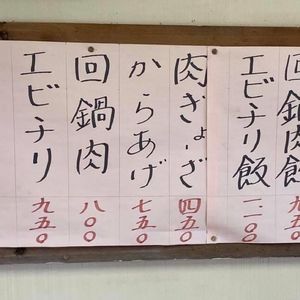 回鍋肉飯
九五〇
エビチリ飯
一一〇〇
肉ぎょーざ
四五〇
からあげ
七五〇
回鍋肉
八〇〇
エビチリ
九五〇